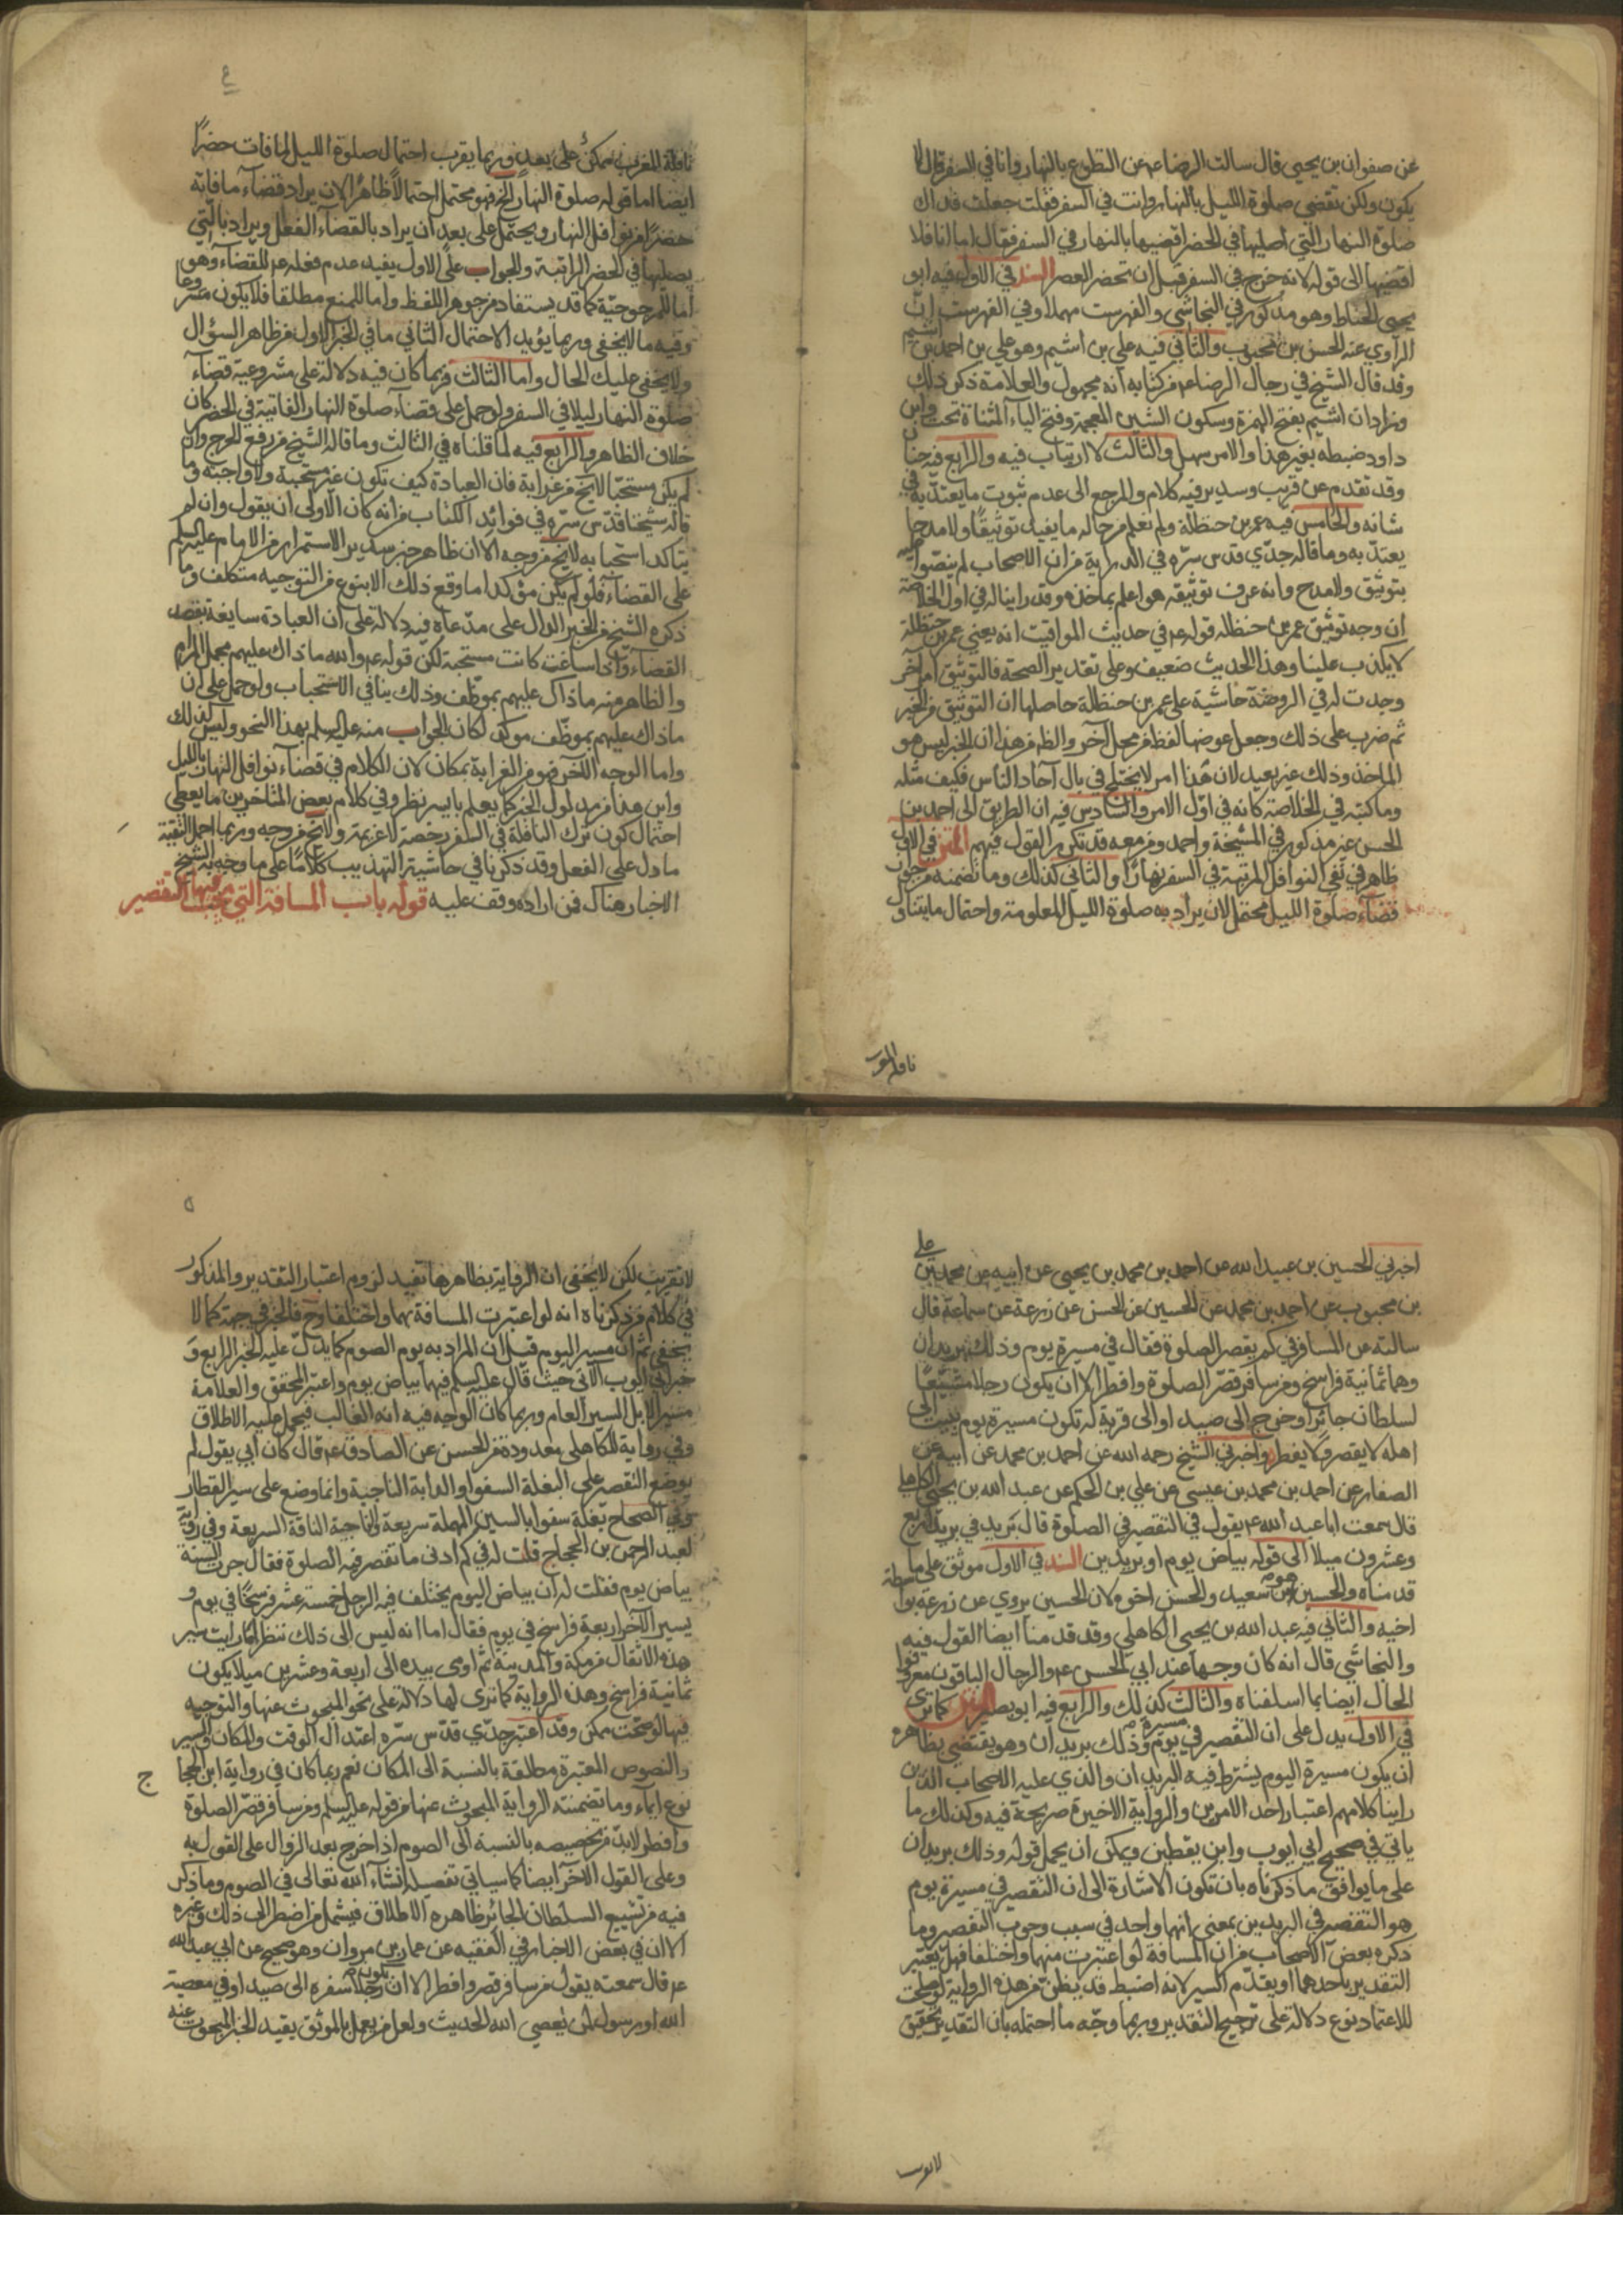 عن صفوان بن يحيى قال سالت الرضا عم عن التطوع بالنهار وانا في السفر فقال لا
يكون ولكن تقضي صلوة الليل بالنهار وانت في السفر فقلت جعلت فداك
صلوة النهار التي اصليها في الحضر اقضيها بالنهار في السفر فقال اما انا فلا
اقضيها الى قوله لانه خرج في السفر قبل ان تحضر العصر السند في الاول فيه ابو
يحيى الحناط وهو مذكور في النجاشي والفهرست مهملا وفي الفهرست ان
الراوي عنه الحسن بن محبوب والثاني فيه علي بن اشيم وهو علي بن احمد بن اشيم
وقد قال الشيخ في رجال الرضا عم من كتابه انه مجهول والعلامة ذكر ذلك
وزاد ان اشيم بفتح الهمزة وسكون الشين المعجمة وفتح الياء المثناة تحت وابن
داود ضبطه بغير هذا والامر سهل والثالث لا ارتياب فيه والرابع فيه حنان
وقد تقدم عن قريب وسدير فيه كلام والمرجع الى عدم ثبوت ما يعتد به في
شانه والخامس فيه عمر بن حنظلة ولم نعلم من حاله ما يفيد توثيقا ولا مدحا
يعتد به وما قاله جدي قدس سره في الدراية من ان الاصحاب لم ينصوا عليه
بتوثيق ولا مدح وانه عرف توثيقه هو اعلم بماخذه وقد راينا له في اول الخلاصة
ان وجه توثيق عمر بن حنظلة قوله عم في حديث المواقيت انه يعني عمر بن حنظلة
لا يكذب علينا وهذا الحديث ضعيف وعلى تقدير الصحة فالتوثيق امر آخر
وجدت له في الروضة حاشية على عمر بن حنظلة حاصلها ان التوثيق من الخبر
ثم ضرب على ذلك وجعل عوضها لفظ من محل آخر والظ من هذا ان الخبر ليس هو
الماخذ وذلك غير بعيد لان هذا امر لا يختلج في بال آحاد الناس فكيف مثله
وما كتبه في الخلاصة كانه في اول الامر والسادس فيه ان الطريق الى احمد بن
الحسن غير مذكور في المشيخة واحمد ومن معه قد تكرر القول فيهم المتن في الاول
ظاهر في نفي النوافل المرتبة في السفر نهارا والثاني كذلك وما تضمنه من جواز
قضاء صلوة الليل محتمل لان يراد به صلوة الليل المعلومة واحتمال ما يتناول
نافلة المغرب
٤
نافلة المغرب ممكن على بعد وربما يقرب احتمال صلوة الليل لما فات حضرا
ايضا اما قوله صلوة النهار الخ فهو محتمل احتمالا ظاهرا لان يراد قضاء ما فاته
حضرا من نوافل النهار ويحتمل على بعد ان يراد بالقضاء الفعل ويراد بالتي
يصليها في الحضر الراتبة والجواب على الاول يفيد عدم فعله عم للقضاء وهو
اما للمرجوحية كما قد يستفاد من جوهر اللفظ واما للمنع مطلقا فلا يكون مشروعا
وفيه ما لا يخفى وربما يؤيد الاحتمال الثاني ما في الخبر الاول من ظاهر السؤال
ولا يخفى عليك الحال واما الثالث فربما كان فيه دلالة على مشروعية قضاء
صلوة النهار ليلا في السفر ولو حمل على قضاء صلوة النهار الفائتة في الحضر كان
خلاف الظاهر والرابع فيه لما قلناه في الثالث وما قاله الشيخ من رفع الحرج وان
لم يكن مستحبا لا يخ من غرابة فان العبادة كيف تكون غير مستحبة ولا واجبة وما
قاله شيخنا قدس سره في فوائد الكتاب من انه كان الاولى ان يقول وان لم
يتاكد استحبابه لا يخ من وجه الا ان ظاهر خبر سدير الاستمرار من الامام عليه السلم
على القضاء فلو لم يكن مؤكدا ما وقع ذلك الا بنوع من التوجيه متكلف وما
ذكره الشيخ من الخبر الدال على مدعاه فيه دلالة على ان العبادة سايغة بقصد
القضاء واذا ساغت كانت مستحبة لكن قوله عم والله ما ذاك عليهم مجمل المرام
والظاهر منه ما ذاك عليهم بموظف وذلك ينافي الاستحباب ولو حمل على ان
ما ذاك عليهم بموظف موكد لكان الجواب منه عليه السلم بهذا النحو وليس كذلك
واما الوجه الآخر فهو من الغرابة بمكان لان الكلام في قضاء نوافل النهار بالليل
واين هذا من مدلول الخبر كما يعلم بايسر نظر وفي كلام بعض المتاخرين ما يعطي
احتمال كون ترك النافلة في السفر رخصة لا عزيمة ولا يخ من وجه وربما احتمل التقية
ما دل على الفعل وقد ذكرنا في حاشية التهذيب كلاما على ما وجه به الشيخ
الاخبار هناك فمن اراده وقف عليه قوله باب المسافة التي يجب فيها التقصير
اخبرني الحسين بن عبيد الله عن احمد بن محمد بن يحيى عن ابيه عن محمد بن علي
بن محبوب عن احمد بن محمد عن الحسين عن الحسن عن زرعة عن سماعة قال
سالته عن المسافر في كم يقصر الصلوة فقال في مسيرة يوم وذلك بريدان
وهما ثمانية فراسخ ومن سافر قصر الصلوة وافطر الا ان يكون رجلا مشيعا
لسلطان جائر او خرج الى صيد او الى قرية له تكون مسيرة يوم يبيت الى
اهله لا يقصر ولا يفطر واخبرني الشيخ رحمه الله عن احمد بن محمد عن ابيه عن
الصفار عن احمد بن محمد بن عيسى عن علي بن الحكم عن عبد الله بن يحيى الكاهلي
قال سمعت ابا عبد الله عم يقول في التقصير في الصلوة قال بريد في بريد اربع
وعشرون ميلا الى قوله بياض يوم او بريدين السند في الاول موثق على ما
قدمناه والحسين هو ابن سعيد والحسن اخوه لان الحسين يروي عن زرعة بواسطة
اخيه والثاني فيه عبد الله بن يحيى الكاهلي وقد قدمنا ايضا القول فيه
والنجاشي قال انه كان وجها عند ابي الحسن عم والرجال الباقون معروفوا
الحال ايضا بما اسلفناه والثالث كذلك والرابع فيه ابو بصير المتن كما ترى
في الاول يدل على ان التقصير في مسيرة يوم وذلك بريدان وهو يقتضي بظاهره
ان يكون مسيرة اليوم يشترط فيه البريدان والذي عليه الاصحاب الذين
راينا كلامهم اعتبار احد الامرين والرواية الاخيرة صريحة فيه وكذلك ما
ياتي في صحيح ابي ايوب وابن يقطين ويمكن ان يحمل قوله وذلك بريدان
على ما يوافق ما ذكرناه بان تكون الاشارة الى ان التقصير في مسيرة يوم
هو التقصير في البريدين بمعنى انهما واحد في سبب وجوب التقصير وما
ذكره بعض الاصحاب من ان المسافة لو اعتبرت منهما واختلفا فهل يعتبر
التقدير باحدهما او يقدم السير لانه اضبط قد يظن من هذه الرواية لو صلحت
للاعتماد نوع دلالة على ترجيح التقدير وربما وجه ما احتمله بان التقدير تحقيق
لا تقريب
٥
لا تقريب لكن لا يخفى ان الرواية بظاهرها تفيد لزوم اعتبار التقدير والمذكور
في كلام من ذكرناه انه لو اعتبرت المسافة بهما واختلفا وح فالخبر في جهة كما لا
يخفى ثم ان مسير اليوم قيل ان المراد به يوم الصوم كما يدل عليه الخبر الرابع و
خبر ابي ايوب الآتي حيث قال عليه السلم فيها بياض يوم واعتبر المحقق والعلامة
مسير الابل السير العام وربما كان الوجه فيه انه الغالب فيحمل عليه الاطلاق
وفي رواية للكاهلي معدودة من الحسن عن الصادق عم قال كان ابي يقول لم
يوضع التقصير على البغلة السفوا والدابة الناجية وانما وضع على سير القطار
وفي الصحاح بغلة سفوا بالسين المهملة سريعة والناجية الناقة السريعة وفي رواية
لعبد الرحمن بن الحجاج قلت له في كم ادنى ما تقصر فيه الصلوة فقال جرت السنة
بياض يوم فقلت له ان بياض اليوم يختلف فيه الرجل خمسة عشر فرسخا في يوم و
يسير الآخر اربعة فراسخ في يوم فقال اما انه ليس الى ذلك ننظر اما رايت سير
هذه الاثقال من مكة والمدينة ثم اومى بيده الى اربعة وعشرين ميلا يكون
ثمانية فراسخ وهذه الرواية كما ترى لها دلالة على نحو المبحوث عنها والتوجيه
فيها لو صحت ممكن وقد اعتبر جدي قدس سره اعتدال الوقت والمكان والسير
والنصوص المعتبرة مطلقة بالنسبة الى المكان نعم ربما كان في رواية ابن الحجاج
نوع ايماء وما تضمنته الرواية المبحوث عنها من قوله عليه السلم ومن سافر قصر الصلوة
وافطر لا بد من تخصيصه بالنسبة الى الصوم اذا خرج بعد الزوال على القول به
وعلى القول الآخر ايضا كما سياتي تفصيله انشاء الله تعالى في الصوم وما ذكر
فيه من تشييع السلطان الجائر ظاهره الاطلاق فيشمل من اضطر الى ذلك وغيره
الا ان في بعض الاخبار في الفقيه عن عمار بن مروان وهو صحيح عن ابي عبد الله
عم قال سمعته يقول من سافر قصر وافطر الا ان يكون رجلا سفره الى صيد او في معصية
الله او رسول لمن يعصي الله الحديث ولعل من يعمل بالموثق يقيد الخبر المبحوث عنه